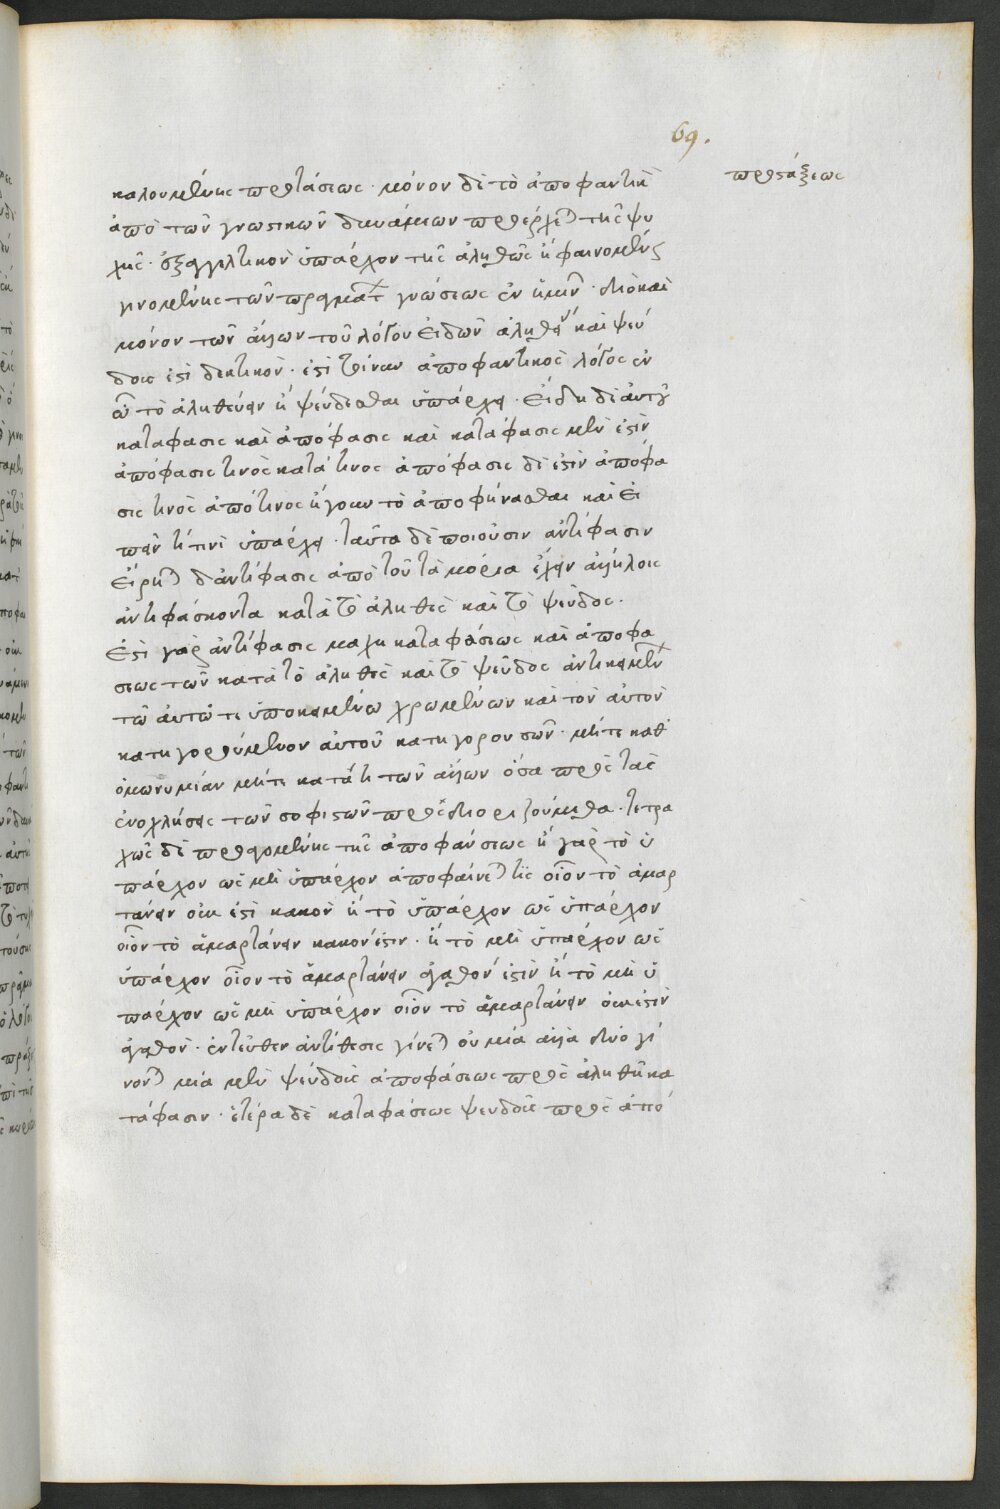 69.
προστάξεως
καλουμένης προτάσεως · μόνον δὲ τὸ ἀποφαντικὸν
ἀπὸ τῶν γνωστικῶν δυνάμεων προέρχεται τῆς ψυ
χῆς · ἐξαγγελτικὸν ὑπάρχον τῆς ἀληθῶς ἢ φαινομένως
γινομένης τῶν πραγμάτων γνώσεως ἐν ἡμῖν · διὸ καὶ
μόνον τῶν ἄλλων τοῦ λόγου εἰδῶν ἀληθείας καὶ ψεύ
δους ἐστὶ δεκτικὸν · ἐστὶ τοίνυν ἀποφαντικὸς λόγος ἐν
ᾧ τὸ ἀληθεύειν ἢ ψεύδεσθαι ὑπάρχει · εἴδη δὲ αὐτοῦ
κατάφασις καὶ ἀπόφασις καὶ κατάφασις μέν ἐστιν
ἀπόφασις τινὸς κατά τινος ἀπόφασις δέ ἐστιν ἀπόφα
σις τινὸς ἀπό τινος ἤγουν τὸ ἀποφήνασθαι καὶ εἰ
πεῖν τί τινὶ ὑπάρχει · ταῦτα δὲ ποιοῦσιν ἀντίφασιν
εἴρηται δ' ἀντίφασις ἀπὸ τοῦ τὰ μόρια ἔχειν ἀλλήλοις
ἀντιφάσκοντα κατὰ τὸ ἀληθὲς καὶ τὸ ψεῦδος ·
ἐστὶ γὰρ ἀντίφασις μάχη καταφάσεως καὶ ἀποφά
σεως τῶν κατὰ τὸ ἀληθὲς καὶ τὸ ψεῦδος ἀντικειμένων
τῷ αὐτῷ τε ὑποκειμένῳ χρωμένων καὶ τὸν αὐτὸν
κατηγορούμενον αὐτοῦ κατηγορουσῶν · μήτε καθ'
ὁμωνυμίαν μήτε κατά τι τῶν ἄλλων ὅσα πρὸς τὰς
ἐνοχλήσεις τῶν σοφιστῶν προσδιοριζούμεθα · τετρα
χῶς δὲ προαγομένης τῆς ἀποφάνσεως ἢ γὰρ τὸ ὑ
πάρχον ὡς μὴ ὑπάρχον ἀποφαίνεταί τις οἷον τὸ ἁμαρ
τάνειν οὐκ ἐστὶ κακὸν ἢ τὸ ὑπάρχον ὡς ὑπάρχον
οἷον τὸ ἁμαρτάνειν κακόν ἐστιν · ἢ τὸ μὴ ὑπάρχον ὡς
ὑπάρχον οἷον τὸ ἁμαρτάνειν ἀγαθόν ἐστὶν ἢ τὸ μὴ ὑ
πάρχον ὡς μὴ ὑπάρχον οἷον τὸ ἁμαρτάνειν οὐκ ἐστὶν
ἀγαθὸν · ἐντεῦθεν ἀντίθεσις γίνεται οὐ μία ἀλλὰ δύο γί
νονται μία μὲν ψευδοῦς ἀποφάσεως πρὸς ἀληθῆ κα
τάφασιν · ἑτέρα δὲ καταφάσεως ψευδοῦς πρὸς ἀπό